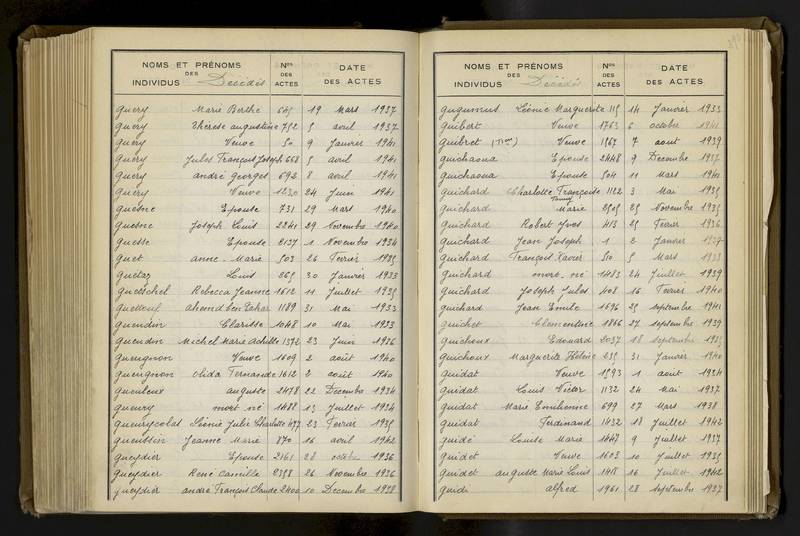 NOMS ET PRÉNOMS DES INDIVIDUS Décédés Nos DES ACTES DATE DES ACTES
Guery Marie Berthe 19 Mars 1937
Guery Therese Augustine 792 5 avril 1937
Guery Veuve 50 9 Janvier 1941
Guery Jules François Joseph 668 5 avril 1941
Guery andré Georges 692 8 avril 1941
Guery Veuve 1230 24 Juin 1941
Guesne Epouse 731 29 Mars 1940
Guesne Joseph Louis 2241 29 Novembre 1940
Guesse Epouse 2137 1 Novembre 1934
Guet anne-Marie 503 26 Fevrier 1935
Louis 265 30 Janvier 1933
Guetschel Rebecca Jeanne 1612 11 Juillet 1935
ahcend Ben Tahar 1189 31 Mai 1933
Gueudin Clarisse 1048 10 Mai 1933
Gueudin Michel Marie Achille 1372 23 Juin 1936
Gueugnon Veuve 1609 2 août 1940
Gueugnon Olida Fernande 1612 2 août 1940
Gueuleux auguste 2478 22 Decembre 1934
Gueury mort né 1488 13 Juillet 1934
Léonie Julie Charlotte 477 23 Fevrier 1935
Jeanne Marie 870 16 avril 1942
Gueydier Epouse 2161 28 octobre 1936
Gueydier René Camille 2358 26 Novembre 1936
Gueydier andré François Claude 2400 10 Decembre
NOMS ET PRÉNOMS DES INDIVIDUS Décédés Nos DES ACTES DATE DES ACTES
Gugumus Léonie Marguerite 115 14 Janvier 1933
Guibert Veuve 1763 6 octobre 1941
Guibret Veuve 1567 7 aout 1939
Guichaoua Epouse 2448 9 Decembre 1937
Guichaoua Epouse 504 11 Mars 1941
Guichard Charlotte Françoise Fanny 1122 3 Mai 1935
Guichard Marie 2505 25 Novembre 1935
Guichard Robert Yves 413 25 Fevrier 1936
Guichard Jean Joseph 1 2 Janvier 1937
Guichard François Xavier 510 5 Mars 1938
Guichard mort-né 1483 24 Juillet 1939
Guichard Joseph Jules 408 16 Fevrier 1940
Guichard Jean Emile 1696 25 septembre 1941
Guichet Clementine 1866 27 septembre 1939
Guichoux Edouard 2037 18 septembre 1935
Guichoux Marguerite Hélène 235 31 Janvier 1940
Guidat Veuve 1593 1 aout 1934
Guidat Louis Victor 1132 24 Mai 1937
Guidat Marie Emilienne 699 27 Mars 1938
Guidat Ferdinand 1432 18 Juillet 1942
Guidé Louise Marie 1447 9 Juillet 1937
Guidet Veuve 1603 10 Juillet 1935
Guidet auguste Marie Louis 1418 16 Juillet 1942
Guidi alfred 1961 28 septembre 1937